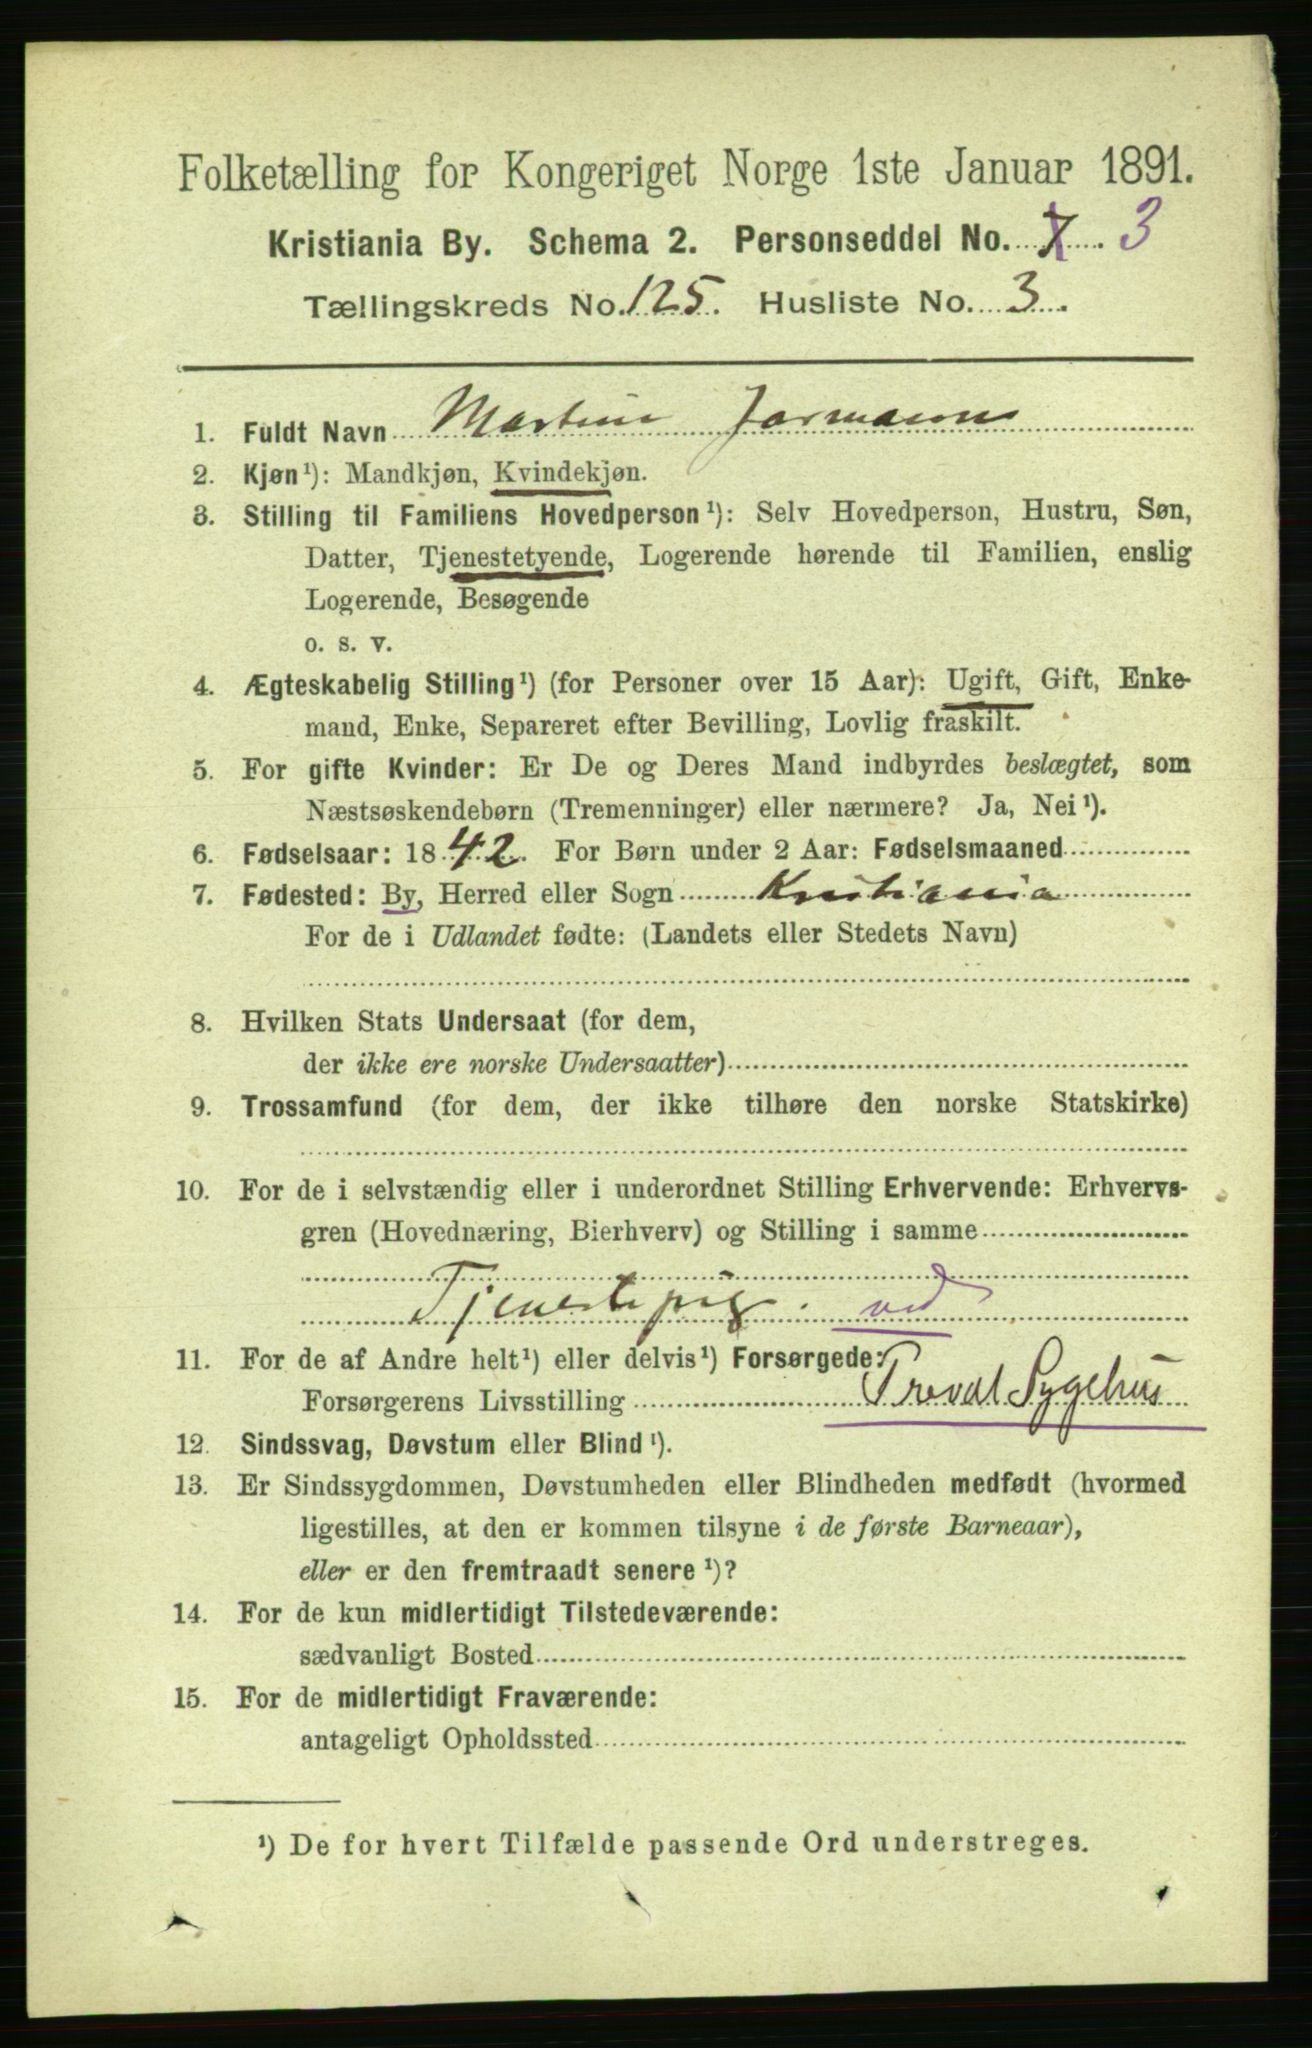 Folketælling for Kongeriget Norge 1ste Januar 1891.
Kristiania By. Schema 2. Personseddel No. 7 3
Tællingskreds No. 125. Husliste No. 3.
1. Fuldt Navn Martine Jarmann
2. Kjøn¹): Mandkjøn, Kvindekjøn.
3. Stilling til Familiens Hovedperson¹): Selv Hovedperson, Hustru, Søn,
Datter, Tjenestetyende, Logerende hørende til Familien, enslig
Logerende, Besøgende
o. s. v.
4. Ægteskabelig Stilling¹) (for Personer over 15 Aar): Ugift, Gift, Enke-
mand, Enke, Separeret efter Bevilling, Lovlig fraskilt.
5. For gifte Kvinder: Er De og Deres Mand indbyrdes beslægtet, som
Næstsøskendebørn (Tremenninger) eller nærmere? Ja, Nei¹).
6. Fødselsaar: 1842. For Børn under 2 Aar: Fødselsmaaned
7. Fødested: By, Herred eller Sogn Kristiania
For de i Udlandet fødte: (Landets eller Stedets Navn)
8. Hvilken Stats Undersaat (for dem,
der ikke ere norske Undersaatter)
9. Trossamfund (for dem, der ikke tilhøre den norske Statskirke)
10. For de i selvstændig eller i underordnet Stilling Erhvervende: Erhvervs-
gren (Hovednæring, Bierhverv) og Stilling i samme
Tjenestepige. ved
11. For de af Andre helt¹) eller delvis¹) Forsørgede:
Forsørgerens Livsstilling Privat Sygehus
12. Sindssvag, Døvstum eller Blind¹).
13. Er Sindssygdommen, Døvstumheden eller Blindheden medfødt (hvormed
ligestilles, at den er kommen tilsyne i de første Barneaar),
eller er den fremtraadt senere¹)?
14. For de kun midlertidigt Tilstedeværende:
sædvanligt Bosted
15. For de midlertidigt Fraværende:
antageligt Opholdssted
¹) De for hvert Tilfælde passende Ord understreges.